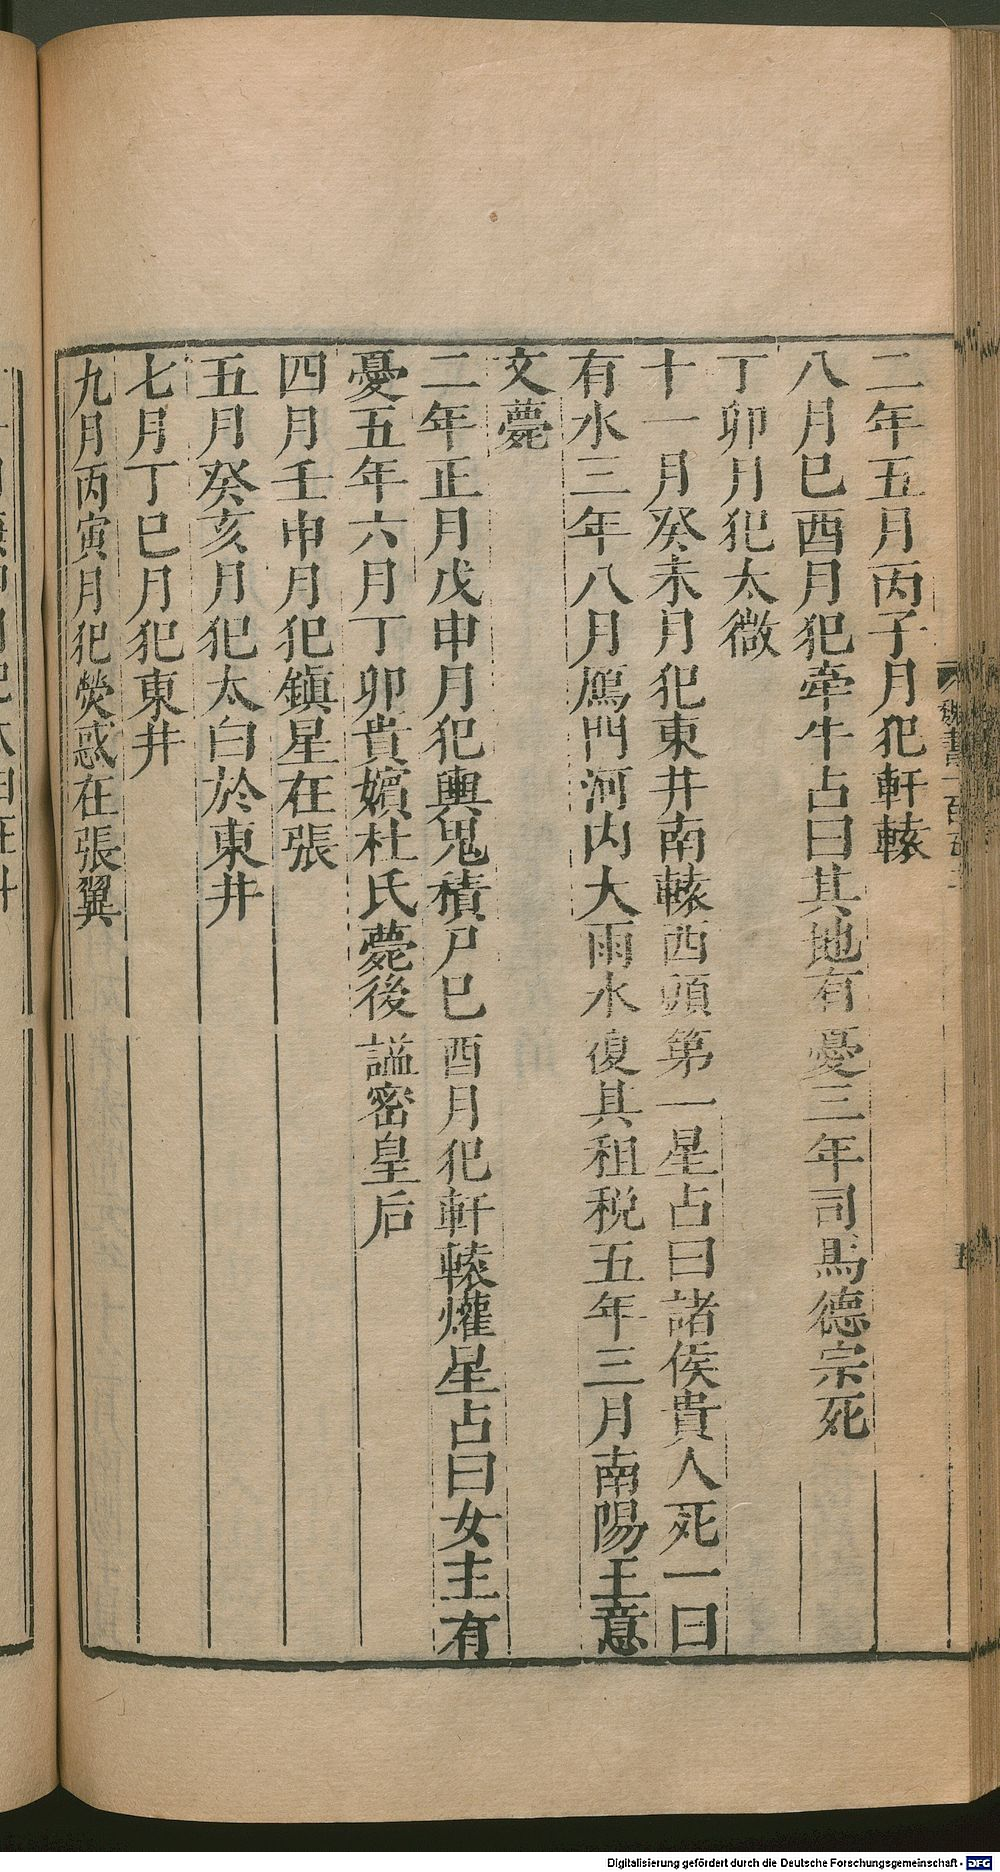 二年五月丙子月犯軒轅
八月巳酉月犯牽牛占曰其地有憂三年司馬德宗死
丁卯月犯太微
十一月癸未月犯東井南轅西頭第一星占曰諸侯貴人死一曰
有水三年八月鴈門河內大雨水復其租稅五年三月南陽王意
文薨
二年正月戊申月犯輿鬼積尸巳酉月犯軒轅爟星占曰女主有
憂五年六月丁卯貴嬪杜氏薨後謚密皇后
四月壬申月犯鎮星在張
五月癸亥月犯太白於東井
七月丁巳月犯東井
九月丙寅月犯熒惑在張翼
魏書一百五
Digitalisierung gefördert durch die Deutsche Forschungsgemeinschaft - DFG